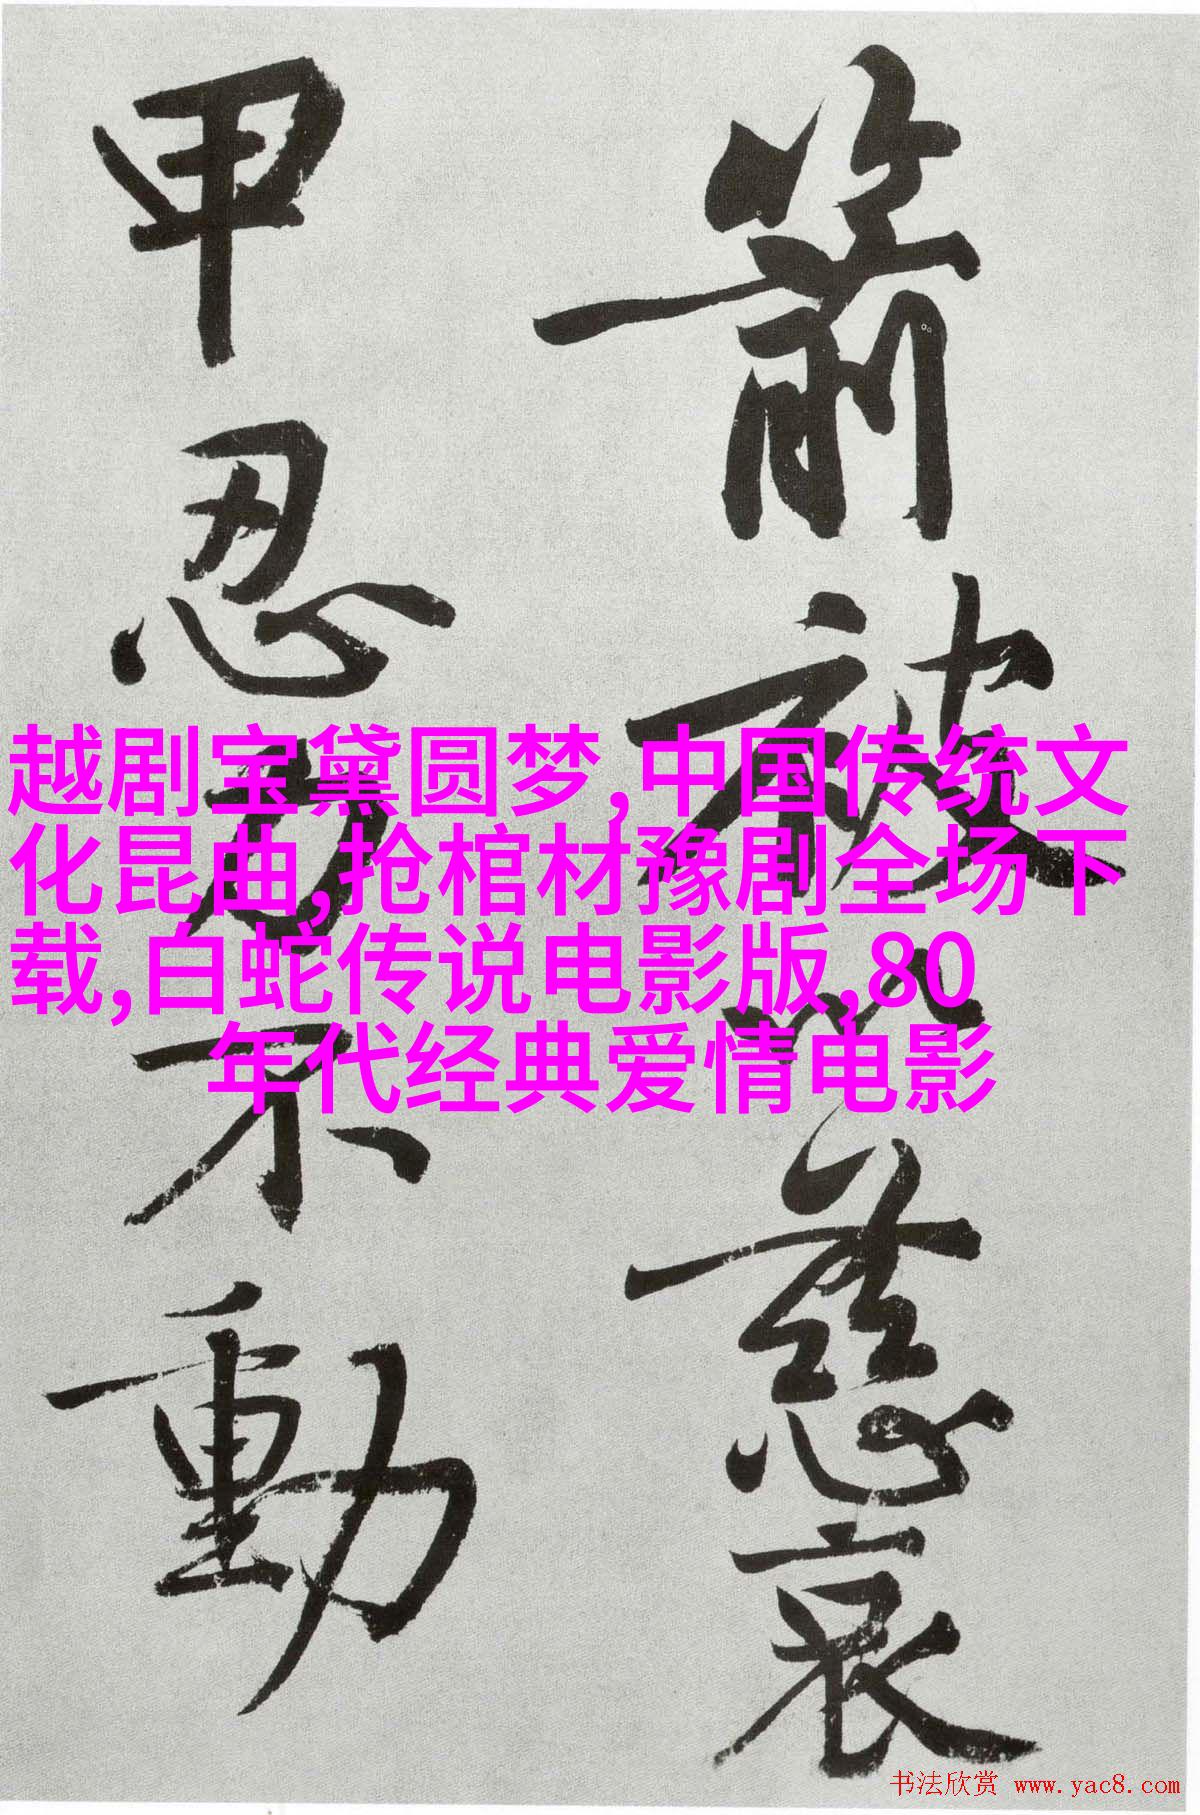 箭被以慈哀
甲忍力不動
越剧宝黛圆梦,中国传统文
化昆曲,抢棺材豫剧全场下
载,白蛇传说电影版,80
年代经典爱情电影
书法欣赏 www.yac8.com